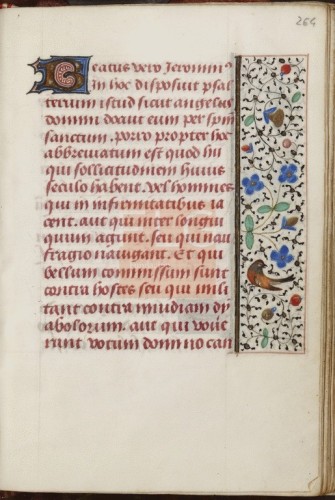 264
Beatus vero Jeronimꝰ
in hoc disposuit psal
terium istud sicut angelus
domini docuit eum per spm
sanctum. porro propter hoc
abbreviatum est quod hii
qui sollicitudinem huius
seculo habent. vel homines
qui in infirmitatibus ia
cent. aut qui inter longin
quum agunt. seu qui nau
fragio navigant. Et qui
bellum commissum sunt
contra hostes seu qui mili
tant contra invidiam dy
abolorum. aut qui vove
runt votum domino can